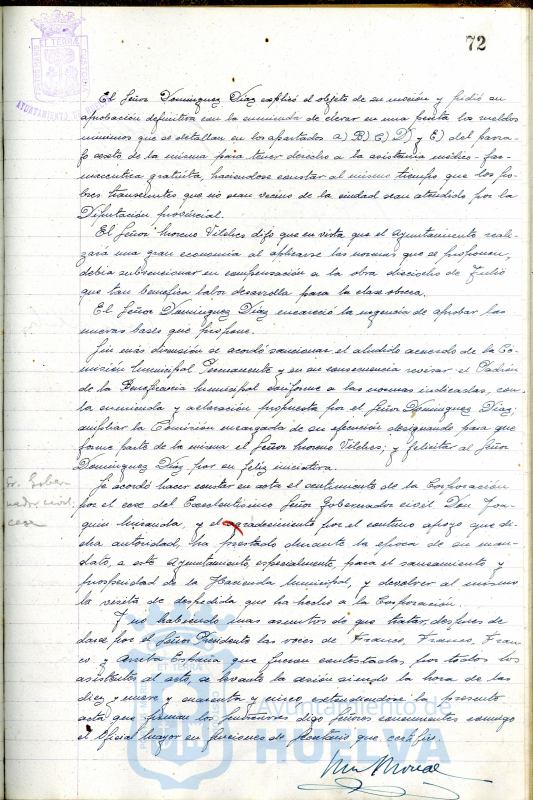 72
El Señor Dominguez Diaz explicó el objeto de su moción y pidió su
aprobación definitiva con la enmienda de elevar en una peseta los sueldos
mínimos que se detallan en los apartados a) B) C) D) y E) del parra-
fo sexto de la misma para tener derecho a la asistencia médico-far-
maceutica gratuita, haciendose constar al mismo tiempo que los po-
bres transeuntes que no sean vecinos de la ciudad sean atendidos por la
Diputación provincial.
El Señor Moreno Vilches dijo que en vista que el Ayuntamiento reali-
zará una gran economia al aplicarse las normas que se proponen,
debia subvencionar en compensación a la obra dieciocho de Julio
que tan benefica labor desarrolla para la clase obrera.
El Señor Dominguez Diaz encareció la urgencia de aprobar las
nuevas bases que propone.
Sin más discusión se acordó sancionar el aludido acuerdo de la Co-
misión Municipal Permanente y en su consecuencia revisar el Padrón
de la Beneficencia Municipal conforme a las normas indicadas, con
la enmienda y aclaración propuesta por el Señor Dominguez Diaz;
ampliar la Comisión encargada de su ejecución designando para que
forme parte de la misma el Señor Moreno Vilches; y felicitar al Señor
Dominguez Diaz por su feliz iniciativa.
Sr. Gober
nador civil,
cese
Se acordó hacer constar en acta el sentimiento de la Corporación
por el cese del Excelentisimo Señor Gobernador civil Don Joa-
quin Miranda, y el agradecimiento por el continuo apoyo que di-
cha autoridad, ha prestado durante la epoca de su man-
dato, a este Ayuntamiento, especialmente, para el saneamiento y
prosperidad de la Hacienda Municipal, y devolver al mismo
la visita de despedida que ha hecho a la Corporación.
Y no habiendo mas asuntos de que tratar, despues de
darse por el Señor Presidente las voces de Franco, Franco, Fran-
co y Arriba España que fueron contestadas por todos los
asistentes al acto, se levantó la sesión siendo la hora de las
diez y nueve y cuarenta y cinco extendiendose la presente
acta que firman los señores digo Señores concurrentes conmigo
el Oficial Mayor en funciones de Secretario que certifico.
Ayuntamiento de
HUELVA